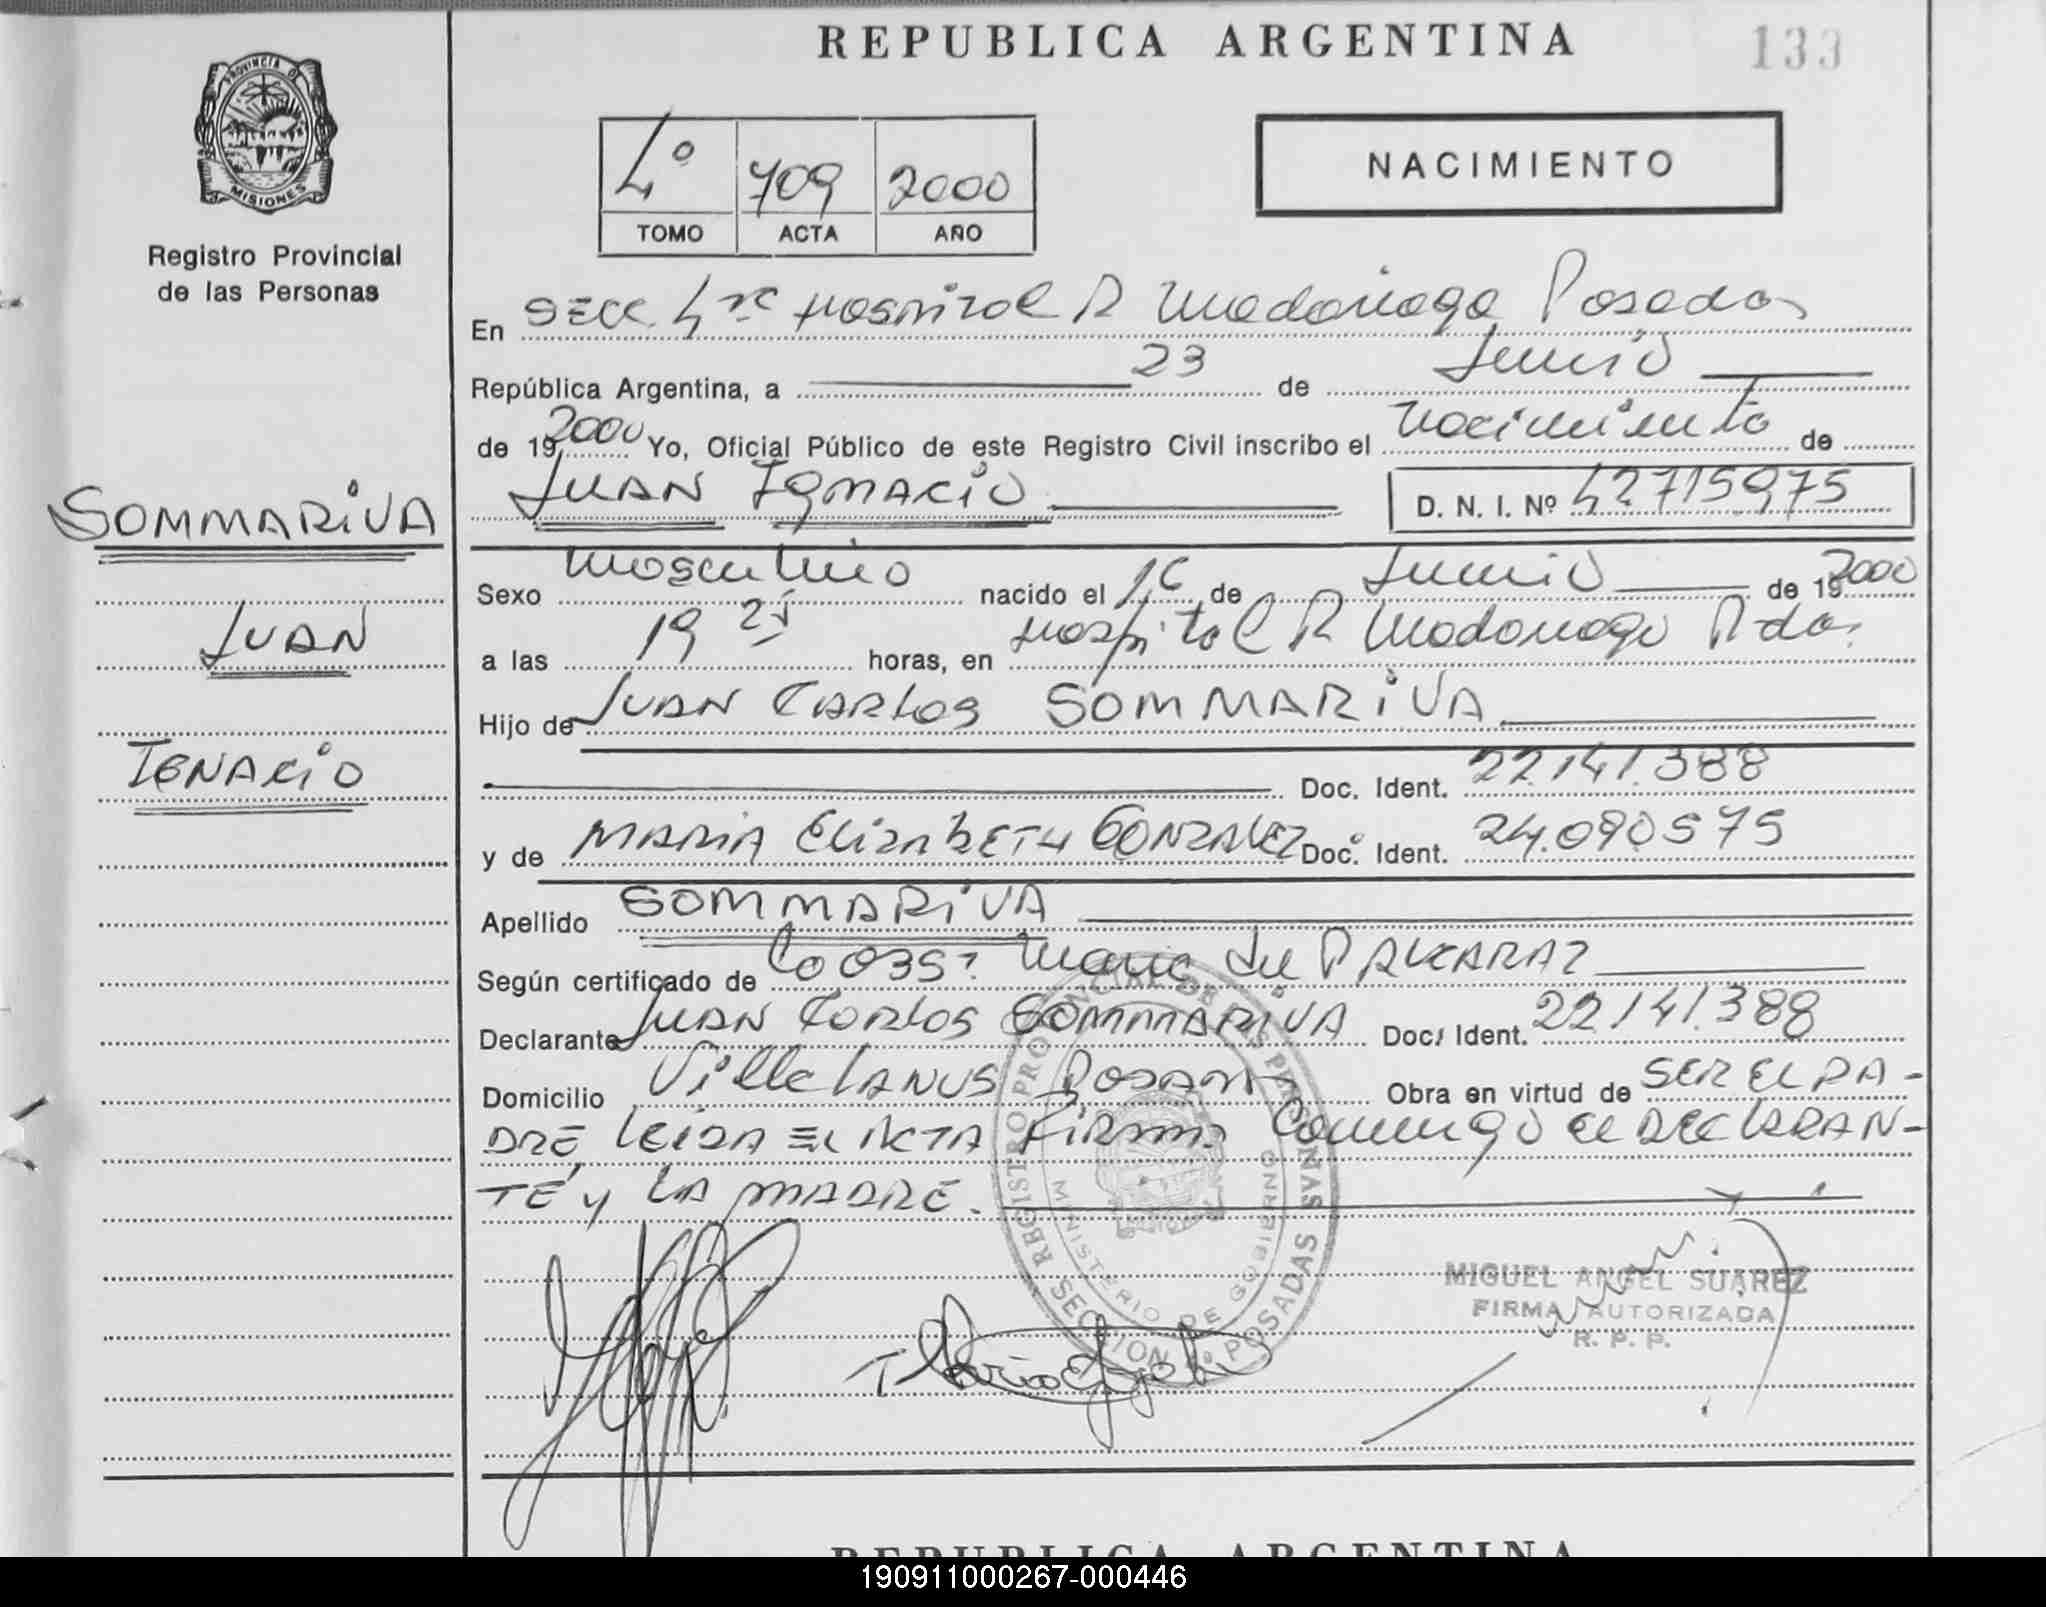 REPUBLICA ARGENTINA
133
PROVINCIA DE
MISIONES
Registro Provincial
de las Personas
4º 709 2000
TOMO ACTA AÑO
NACIMIENTO
En SECC. 4ta Hospital R Madariaga Posadas
República Argentina, a 23 de Junio
de 19 2000 Yo, Oficial Público de este Registro Civil inscribo el nacimiento de
JUAN IGNACIO D. N. I. Nº 42715975
SOMMARIVA
JUAN
IGNACIO
Sexo masculino nacido el 16 de Junio de 19 2000
a las 19 25 horas, en Hospital R Madariaga Pdas
Hijo de JUAN CARLOS SOMMARIVA
Doc. Ident. 22.141.388
y de MARIA ELIZABETH GONZALEZ Doc. Ident. 24.090575
Apellido SOMMARIVA
Según certificado de Maria ALCARAZ
Declarante JUAN CARLOS SOMMARIVA Doc. Ident. 22.141.388
Domicilio Villa LANUS Obra en virtud de SER EL PA-
DRE LEIDA EL ACTA FIRMAN Conmigo el DECLARAN-
TE y LA MADRE.
REGISTRO PROVINCIAL DE LAS PERSONAS
MINISTERIO DE GOBIERNO
SECCION POSADAS
MIGUEL ANGEL SUAREZ
FIRMA AUTORIZADA
R. P. P.
REPUBLICA ARGENTINA
190911000267-000446